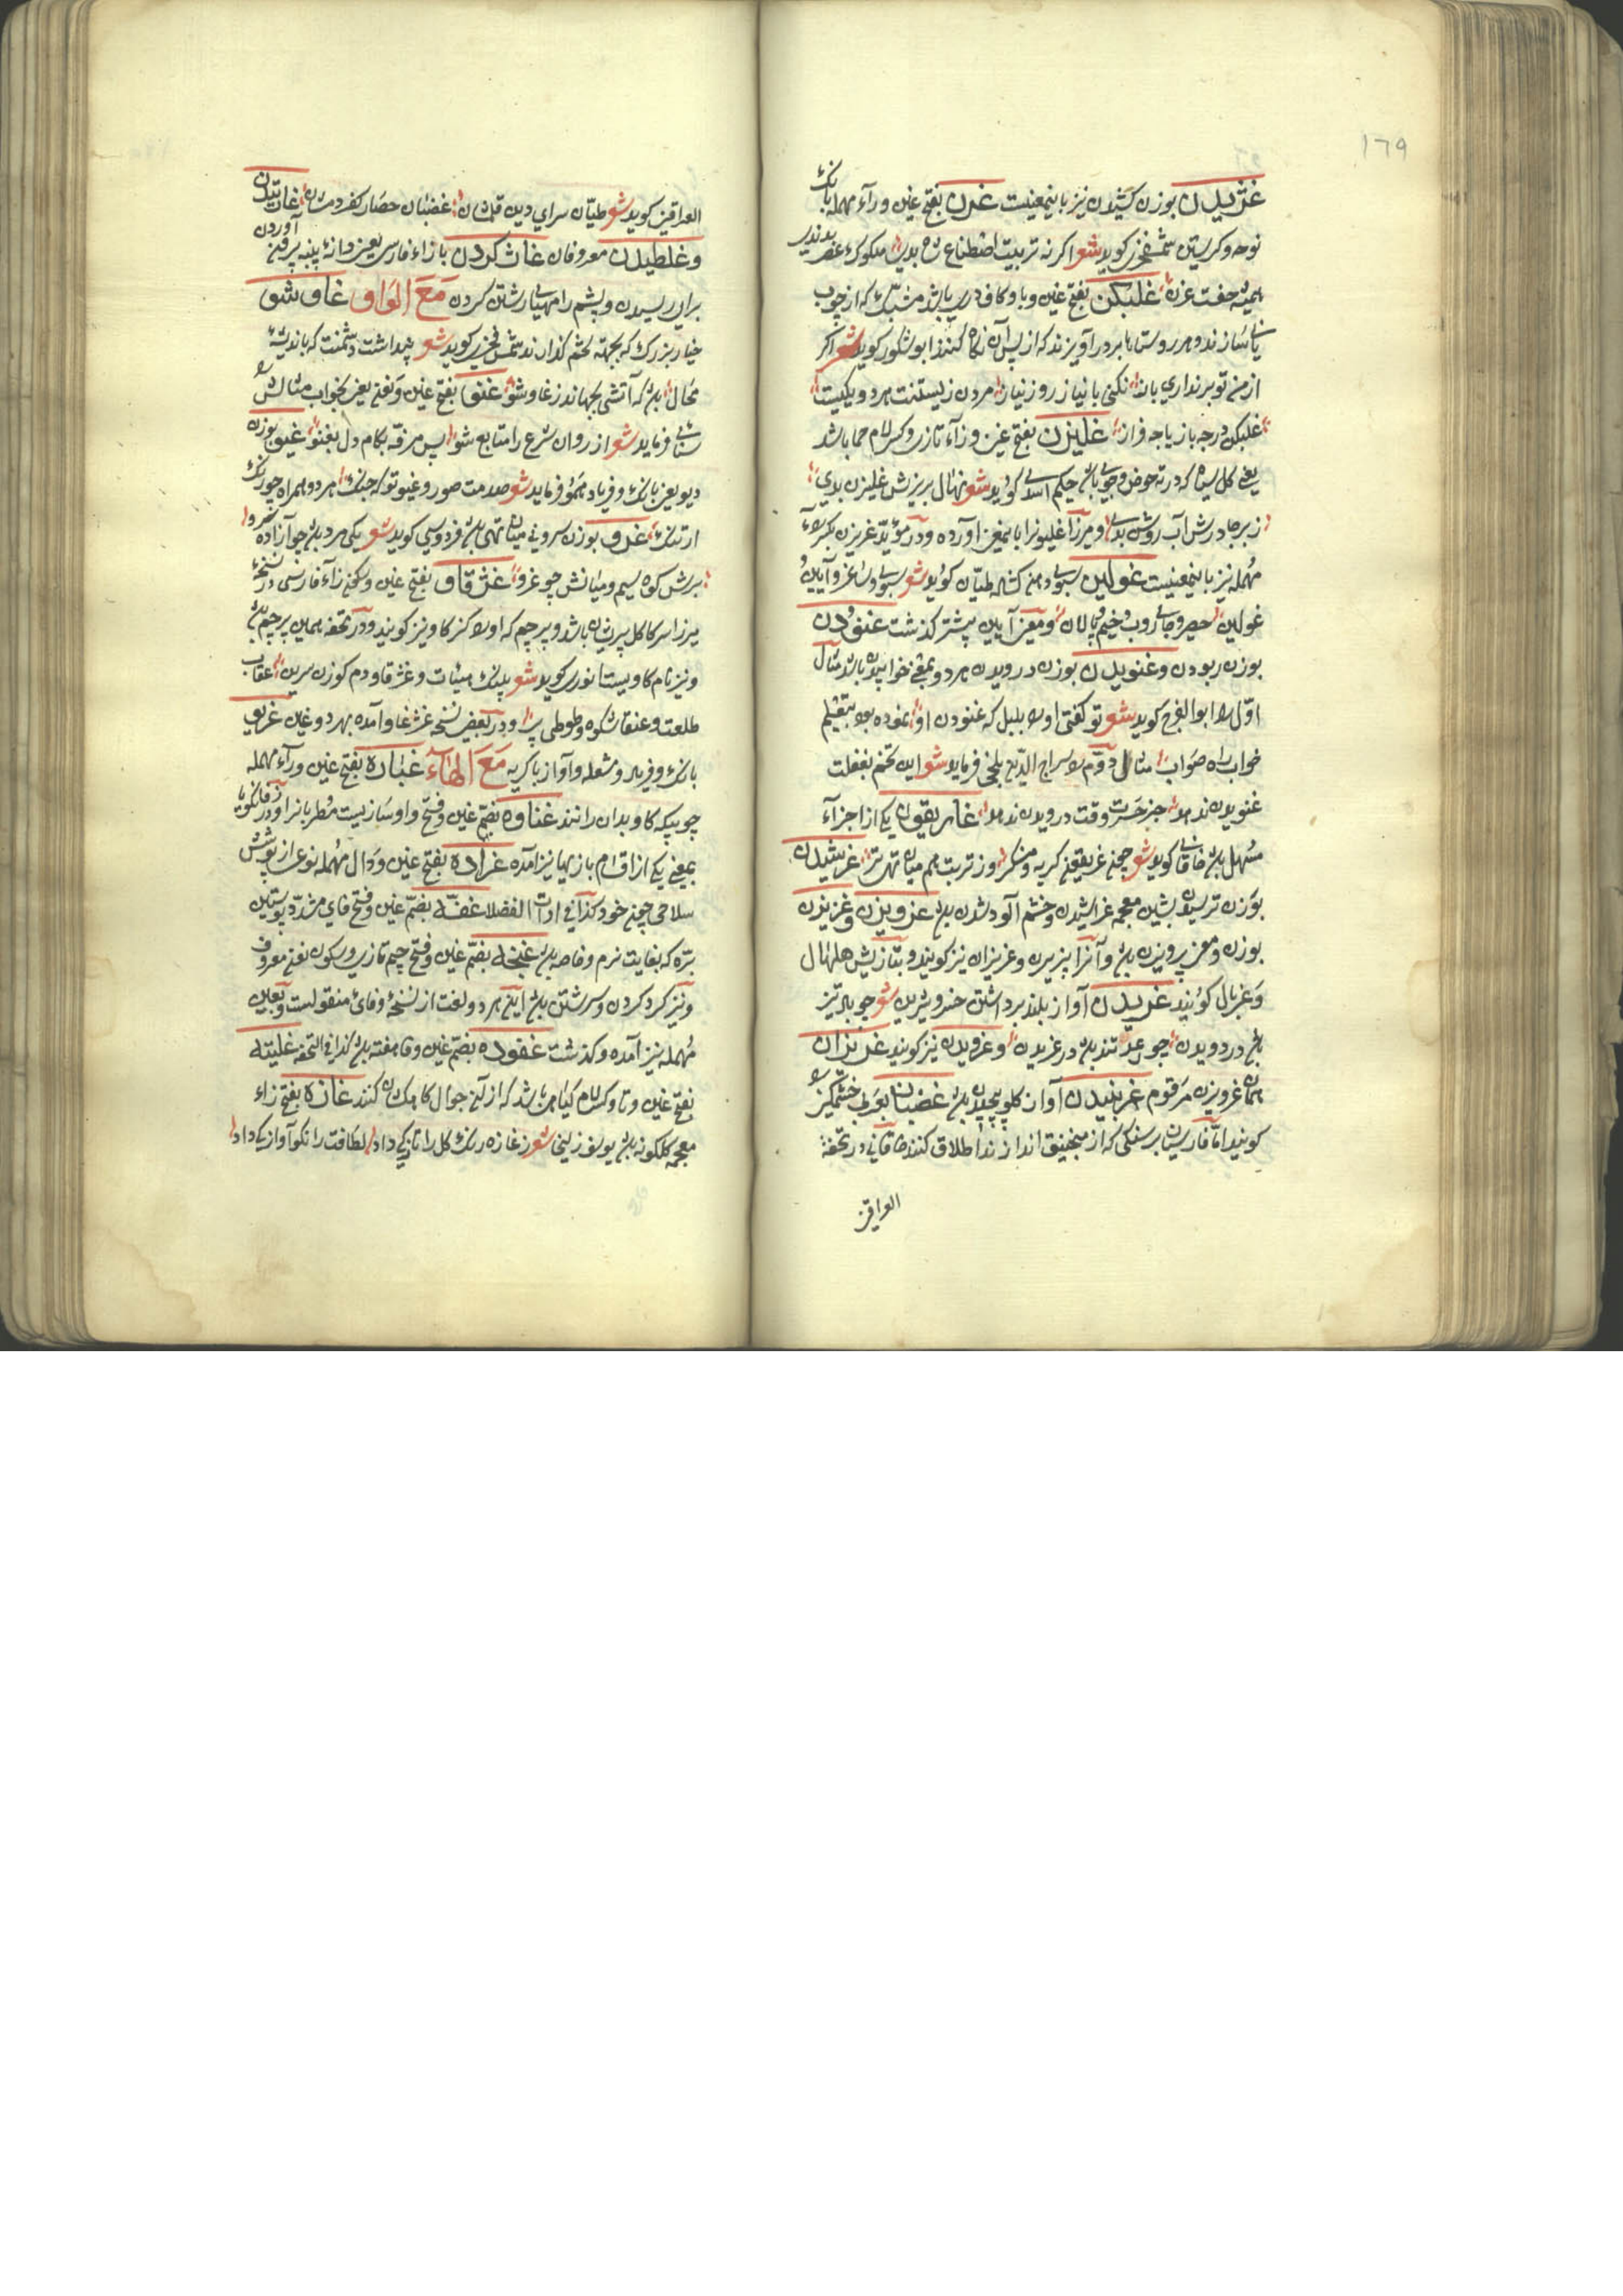 ١٦٩
غژیدن بوزن کشیدن نیز باینمعنیست غرن بفتح غین و رآء مهمله بانک
نوحه و کرستن شمس فخری کوید شعر اکر نه تربیت اصطناع شاه بدی ملکوک عصر بدندی
همیشه جفت غرن غلبکن بفتح غین و با و کاف دری باشد مشبک که از چوب
یا نی سازند و در روستاها بر در آویزند که از پس آن نکاه کنند ابو شکور کوید شعر اکر
از من تو بر نداری باز نکنی با نیاز روز نیاز مردن زیستنت هر دو یکیست
غلبکن در چه باز یا چه فراز غلیزن بفتح غین و زآء تازی و کسر لام حما باشد
یعنی کل سیاه که در ته حوض و جوی باشد حکیم اسدی کوید شعر نهال بریزش غلیزن بدی
زبرجد درش آب روشن بدی و میرزا غلیو نرا باینمعنی آورده و در مؤید غریزن بکسر رآء
مهمله نیز باینمعنیست غولین سبوی دهن کشاده طیان کوید شعر سبوی و ساغر و آنین و
غولین حصیر و جاروب و خیم و پالان و معنی آیین پیشتر کذشت غنودن
بوزن ربودن و غنویدن بوزن درویدن هر دو بمعنی خوابیدن باشد مثال
اول را ابو الفرج کوید شعر تو کفتی اورا بلبل که غنودن او نموده بود بتعلیم
خواب راه صواب مثال دوم را سراج الدین بلخی فرماید شعر این تخم بغفلت
غنویدن ندهد جز حسرت وقت درویدن ندهد غاریقون یکی از اجزآء
مسهل باشد خاقانی کوید شعر
بوزن ترسیدن بشین معجمه غراشیدن و خشم آلود شدن باشد غرویزن و غریزن
بوزن و معنی پرویزن باشد و آنرا پریزن و غریزان نیز کویند و بتازیش هلهال
و غربال کویند غریدن آواز بلند برداشتن خسرو شیرین شعر چو باد تیز
باشد در دویدن چو رعد تند باشد در غریدن و غرویدن نیز کویند غریزان
همان غرویزن مرقوم غرنبیدن آواز کلو پیچیدن باشد غضبان بعربی خشمکین را
کویند اما فارسیان بر سنکی که از منجنیق اندازند اطلاق کنند خاقانی در تحفة
العراقین
العراقین کوید شعر طیان سرای دین قلشان غضبان حصار کفر دمشان غاتیدن
و غلطیدن معروفان غاش کردن بازآء فارسی یعنی دانه پنبه بر آوردن
برای ریسیدن و پشم را مهیای رشتن کردن مَعَ الواو غاوشو
خیار بزرک که بجهة تخم کذارند شمس فخری کوید شعر پنداشت دشمنت که باندیشه
محال بلن که آتشی بجهاند ز غاوشو غنو بفتح غین و نفتح یعنی بخواب مثالش را
سنایی فرماید شعر از روان شرع را متابع شو پس مرفه بکام دل بغنو غیو بوزن
دیو یعنی بانک و فریاد همو فرماید شعر صدمت صور و غیو تو که جنک هر دو همراه چو رنک
ارتنک غرو بوزن سرو نی میان تهی باشد فردوسی کوید شعر یکی مرد باشد چو آزاده سرو
برش کوه سیم و میانش چو غرو غژقاو بفتح غین و سکون زآء فارسی در نسخهٔ
میرزا سر کاکل پریشان باشد و پرچم که اورا کژکاو نیز کویند و در تحفه همین پرچم باشد
و نیز نام کاویست انوری کوید شعر پلنک هیئات و غژقاو دم کوزن سرین عقاب
طلعت و عنقا شکوه و طوطی پر و در بعضی نسخه غژغاو آمده بهر دو غین غریو
بانک و فریاد و مشعله و آواز با کریه مَعَ الهآء غبازه بفتح غین و رآء مهمله
چوبیکه کاو بدان رانند غناوه بضم غین و فتح واو سازیست مطربانرا و در فرهنک
بمعنی یکی از اقسام بازیها نیز آمده غراده بفتح غین و دال مهمله نوعی از پوشش
سلاحی چون خود کذا فی ادات الفضلا غفه بضم غین و فتح فای مشدد پوستین
بره که بغایت نرم و خاصه باشد غنجه بضم غین و فتح جیم تازی و سکون نفتح معروف
و نیز کرد کردن و سرشتن باشد این هر دو لغت از نسخهٔ وفائی منقولست و بعین
مهمله نیز آمده و کذشت غفوده بضم غین و فا هفته باشد کذا فی التحفه غلیته
بفتح غین و تا و کسر لام کیاهی باشد که از آن جوال کاهکشان کنند غازه بفتح زآء
معجمه کلکونه باشد یوسف زلیخا شعر ز غازه رنک کل را تازکی داد لطافت را نکو آوازکی داد